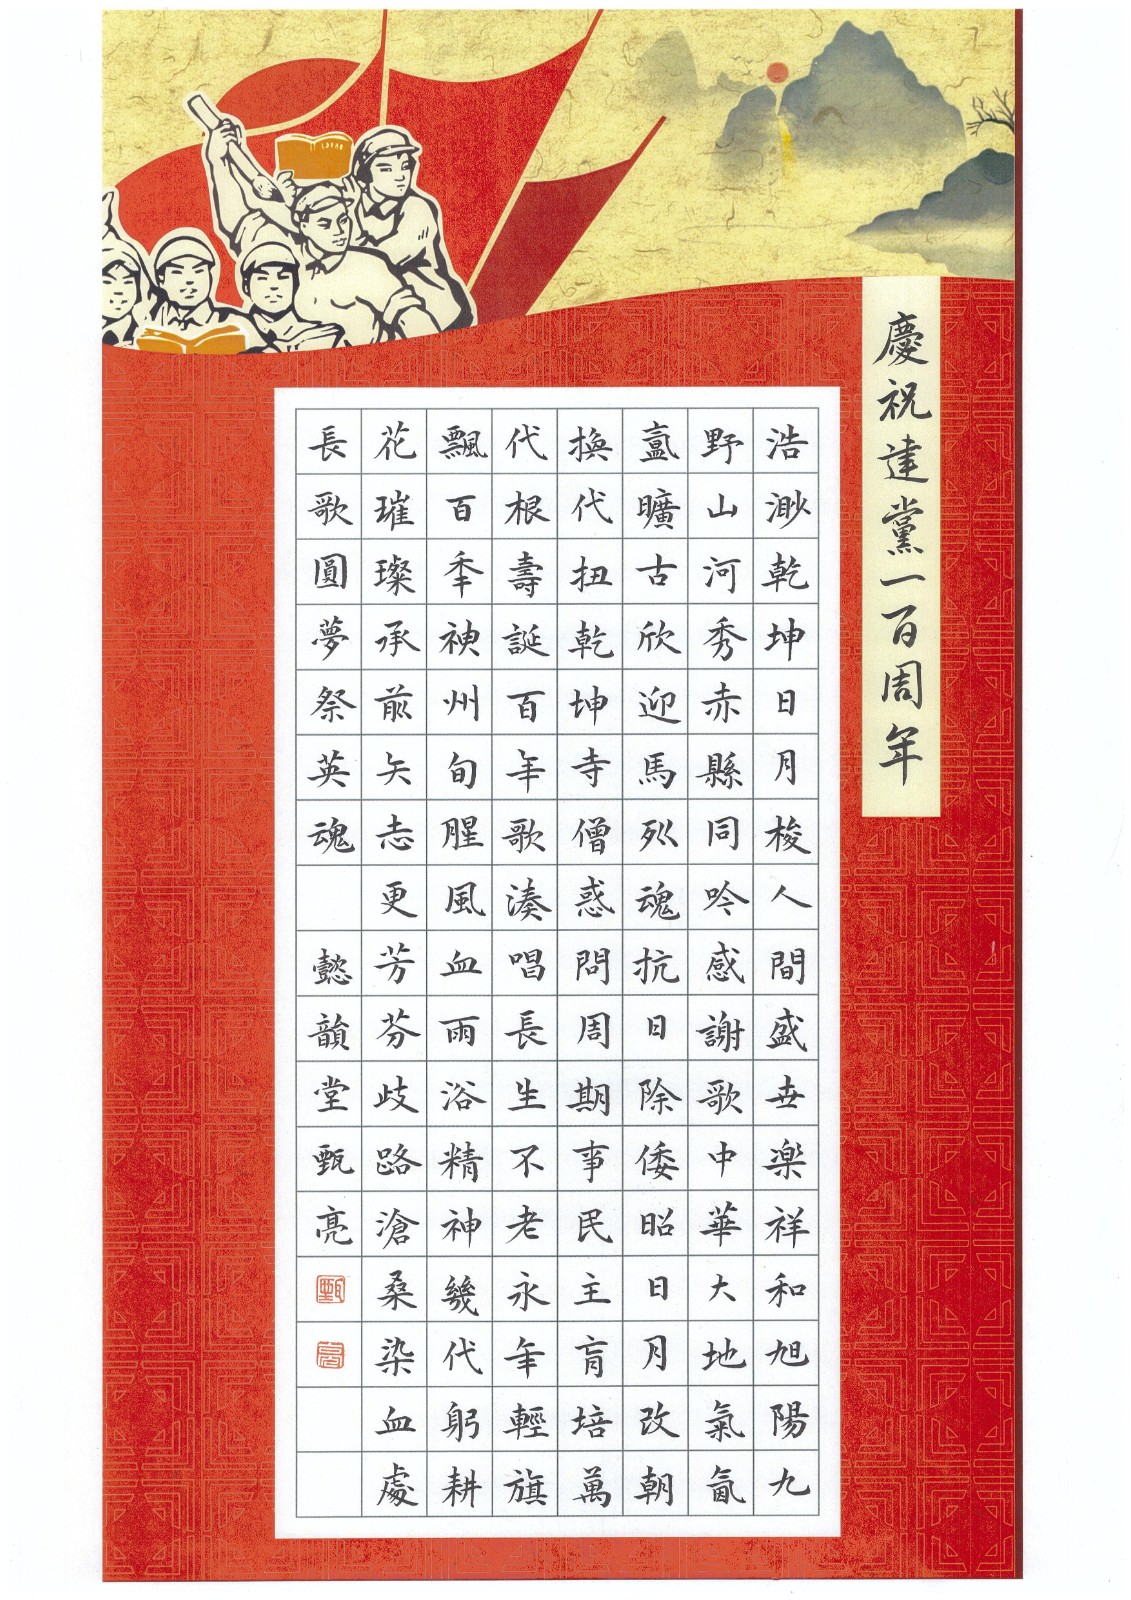 慶祝建黨一百周年
浩渺乾坤日月梭人間盛世樂祥和旭陽九
野山河秀赤縣同吟感謝歌中華大地氣氤
氳曠古欣迎馬烈魂抗日除倭昭日月改朝
換代扭乾坤寺僧惑問周期事民主育培萬
代根壽誕百年歌湊唱長生不老永年輕旗
飄百年神州旬腥風血雨浴精神幾代躬耕
花璀璨承前矢志更芳芬歧路滄桑染血處
長歌圓夢祭英魂 懿韻堂甄亮
甄
亮